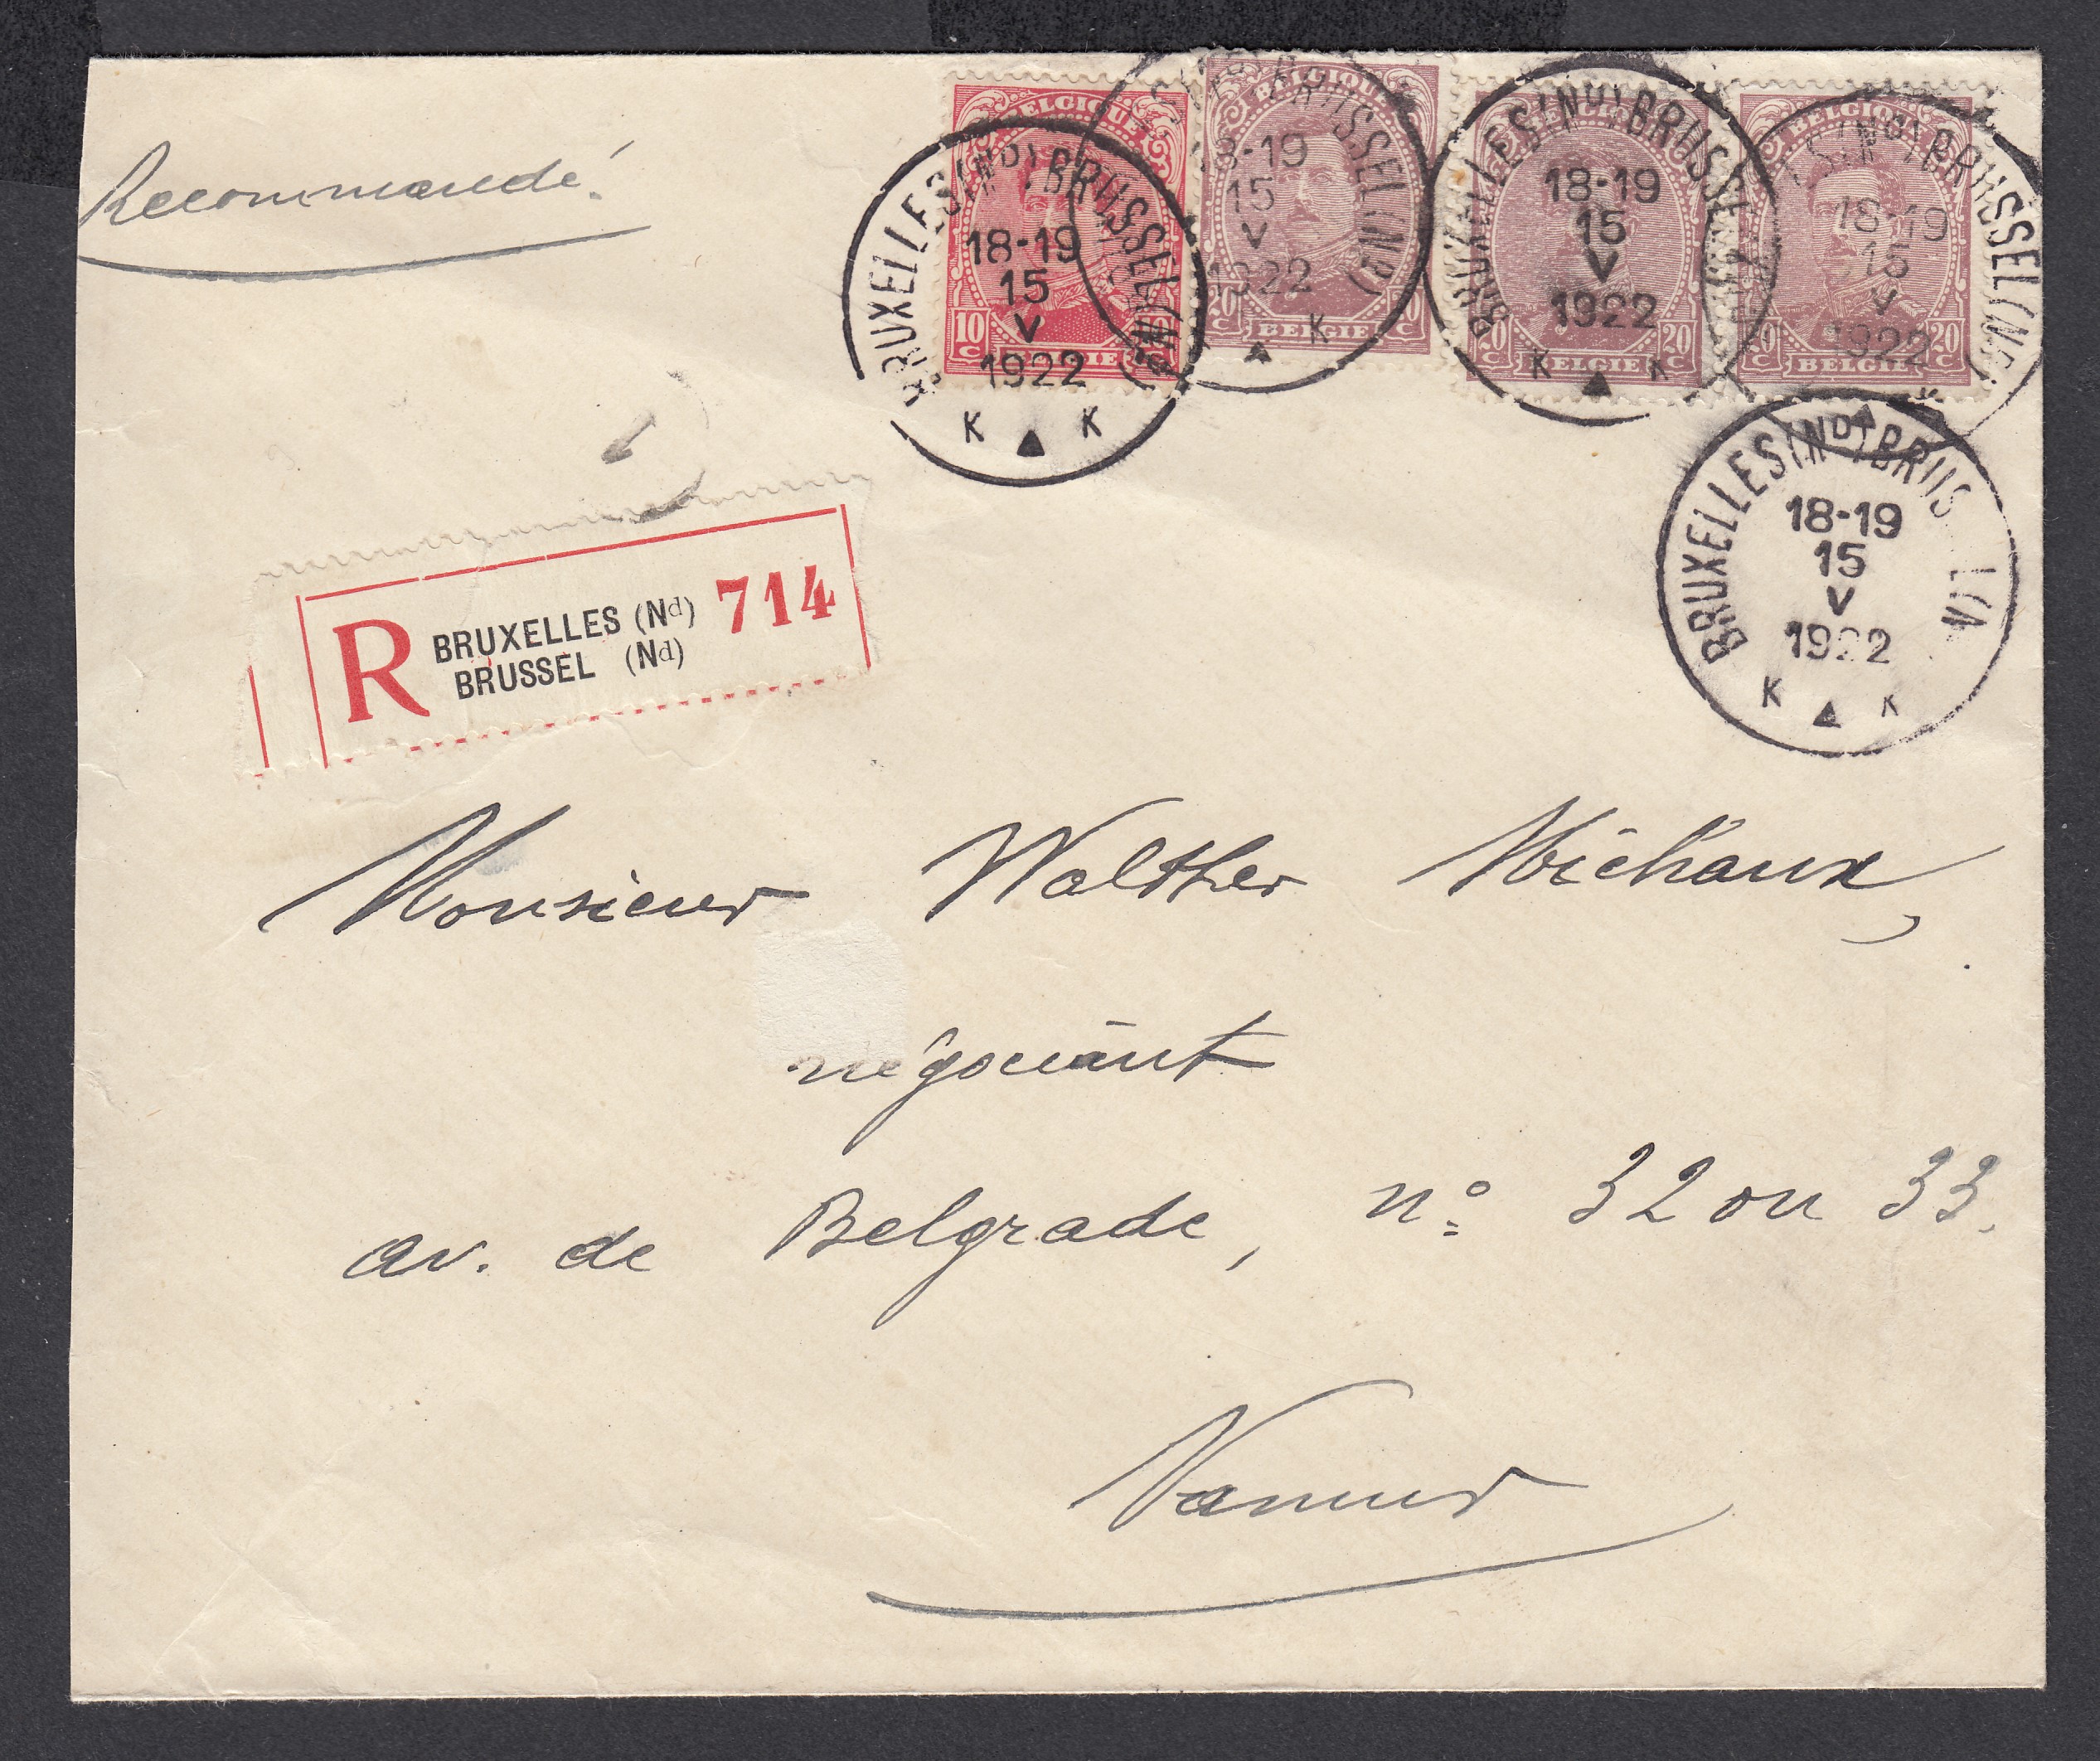 Recommandé.
BELGIQUE
10 C
BELGIE
BELGIQUE
20 C
BELGIE
BELGIQUE
20 C 20 C
BELGIE
BELGIQUE
20 C
BELGIE
BRUXELLES (ND) BRUSSEL (ND)
18-19
15
V
1922
K K
BRUSSEL (ND)
18-19
15
V
1922
K
BRUXELLES (ND) BRUSSEL (ND)
18-19
15
V
1922
K K
(ND) BRUSSEL (ND)
18-19
15
V
1922
K
BRUXELLES (ND)
18-19
15
V
1922
K K
R BRUXELLES (Nd) 714
BRUSSEL (Nd)
Monsieur Walther Michaux,
négociant
av. de Belgrade, n° 32 ou 33.
Namur